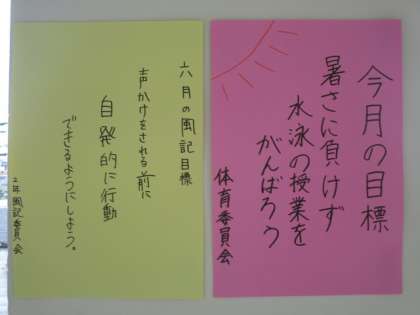 今月の目標
暑さに負けず
水泳の授業を
がんばろう
体育委員会
六月の風記目標
声かけをされる前に
自発的に行動
できるようにしよう。
二年風記委員会